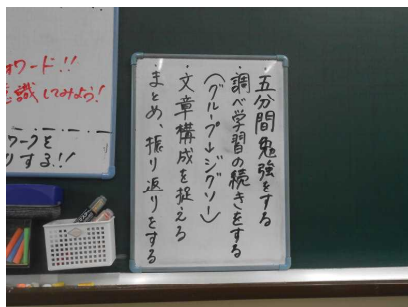 ・五分間勉強をする
・調べ学習の続きをする
（グループ→ジグソー）
・文章構成を捉える
・まとめ、振り返りをする
ワード!!
識してみよう!
ワークを
りする!!